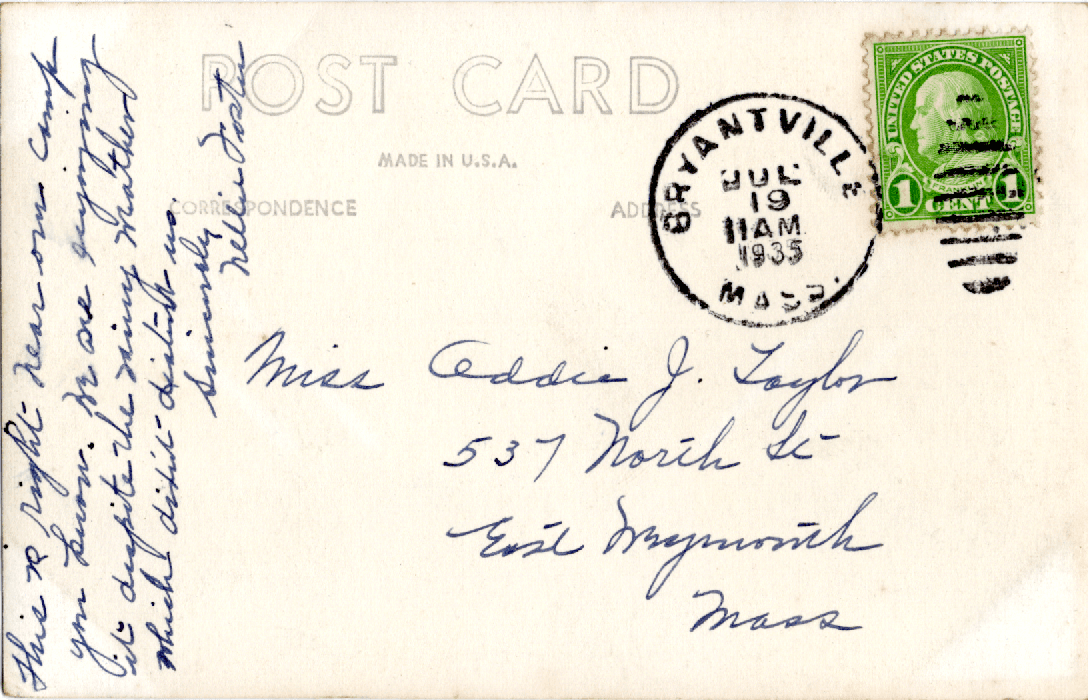 POST CARD
MADE IN U.S.A.
CORRESPONDENCE
ADDRESS
UNITED STATES POSTAGE
1 CENT 1
BRYANTVILLE
JUL
19
11 AM
1935
MASS.
This is right near our camp
you know. We are enjoying
it despite the rainy weather
which didn't disturb us
Sincerely
Nellie Foster
Miss Addie J. Taylor
537 North St
East Weymouth
Mass